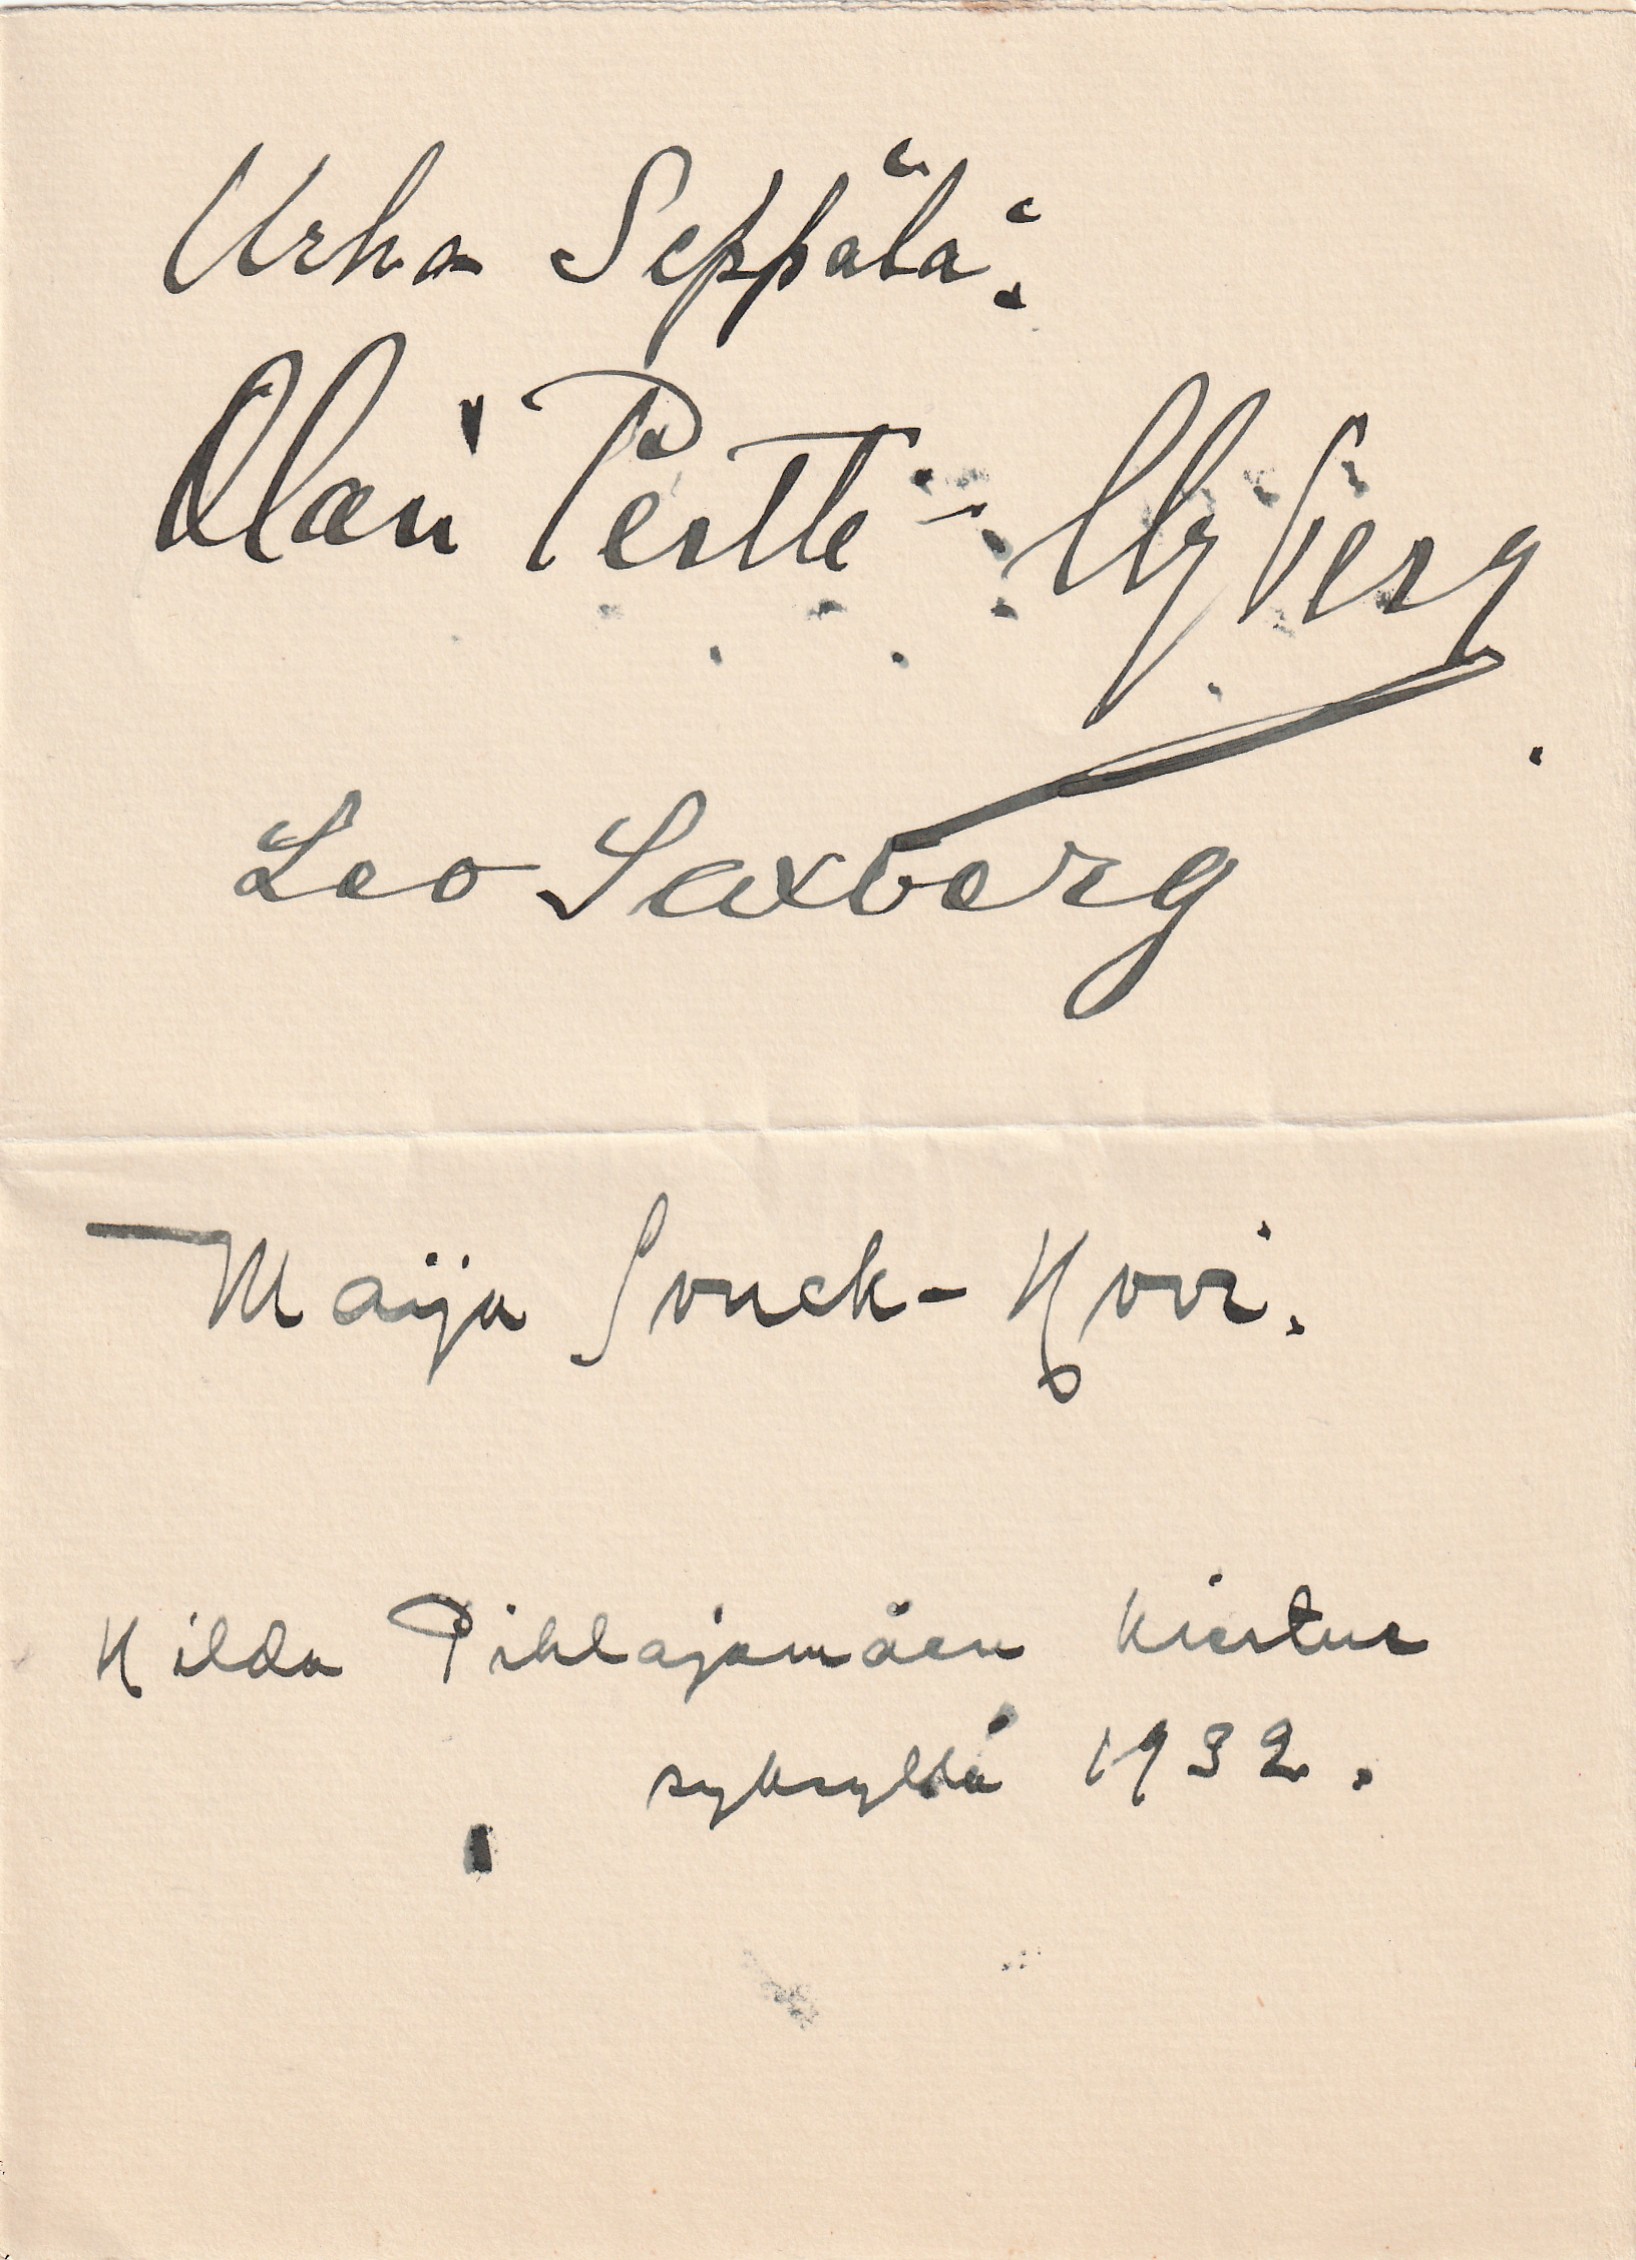 Urho Seppälä.
Olavi Pertti
Leo Saxberg
Maija Snuck-Hovi.
Hilda Pihlajamäen kiertue
syksyllä 1932.